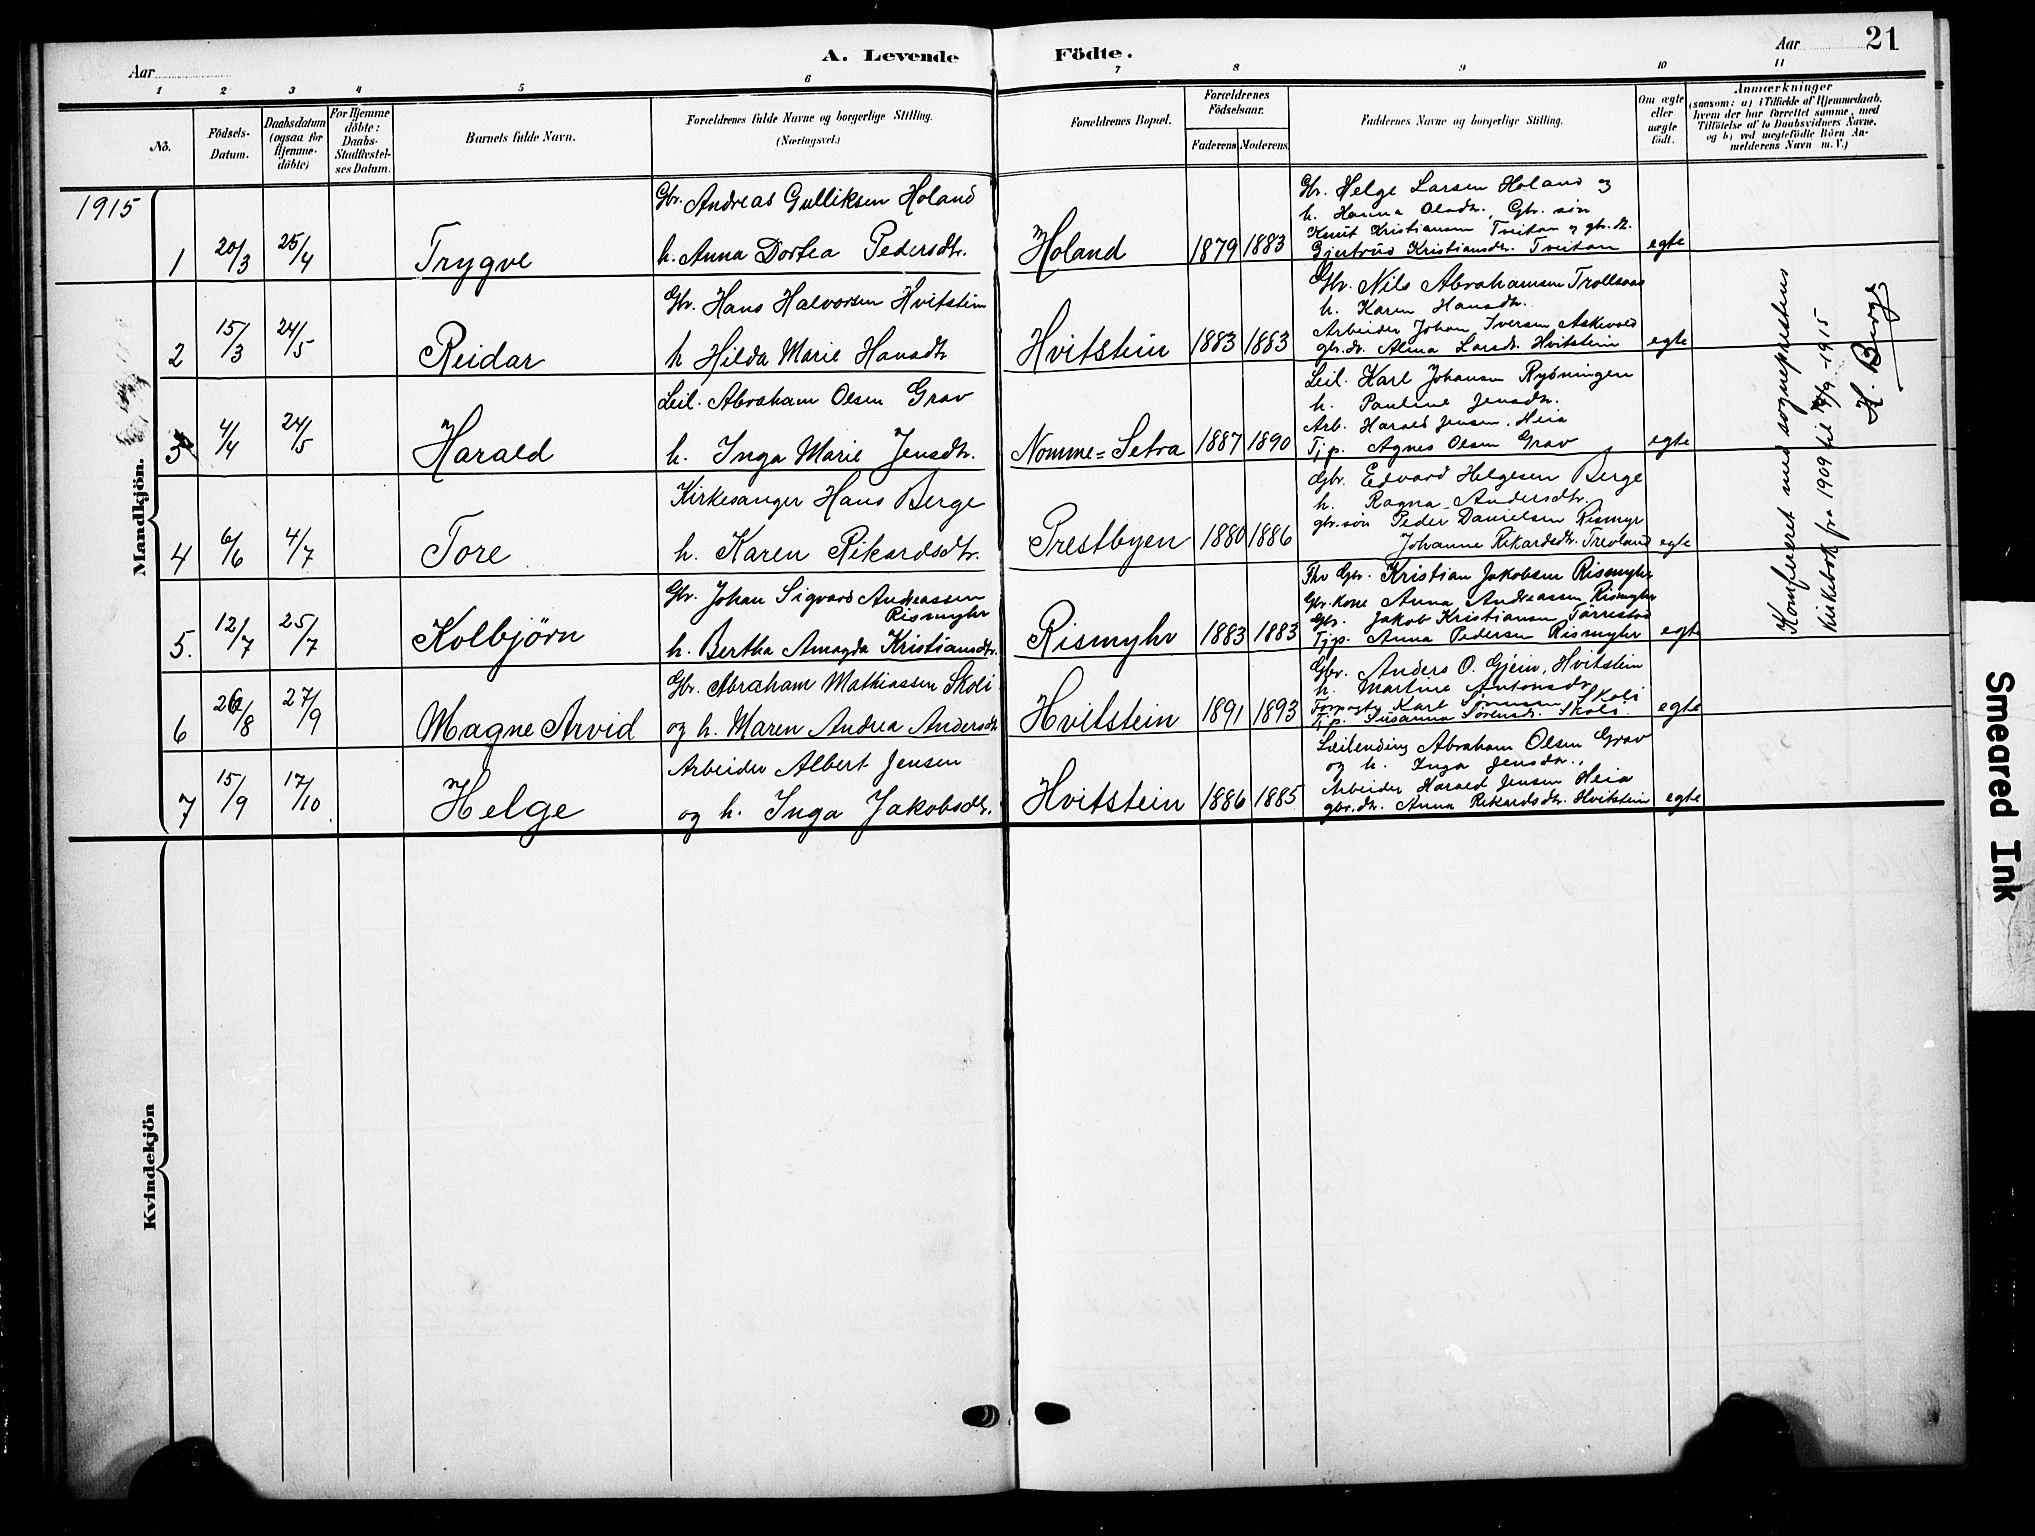 A. Levende Födte.
Aar
Aar 21
1 2 3 4 5 6 7 8 9 10 11
No.
Födsels-Datum.
Daabsdatum (ogsaa for Hjemmedöbte)
For Hjemmedöbte: Daabs-Stadfæstelses Datum.
Barnets fulde Navn.
Forældrenes fulde Navne og borgerlige Stilling.
(Næringsvei.)
Forældrenes Bopæl.
Forældrenes Födselsaar.
Faderens Moderens
Faddernes Navne og borgerlige Stilling.
Om ægte eller uægte födt.
Anmærkninger
(saasom: a) i Tilfælde af Hjemmedaab, hvem der har forrettet samme, med Tilföielse af to Daabsvidners Navne, og b) ved uægtefödte Börn Anmelderens Navn m. V.)
1915
Mandkjön.
1 20/3 25/4 Trygve
Gbr. Andreas Gulliksen Holand
h. Anna Dortea Pedersdtr.
Holand 1879 1883
Gbr. Helge Larsen Holand og
h. Hanna Olsdtr., Gbr. søn
Knut Kristiansen Tveitan og gbr. d.
Gjertrud Kristiansdtr. Tveitan egte
2 15/3 24/5 Reidar
Gbr. Hans Halvorsen Hvitstein
h Hilda Marie Hansdtr
Hvitstein 1883 1883
Gbr. Nils Abrahamsen Trollsaas
h. Karen Hansdtr.
Arbeider Johan Iversen Askevold
gbr. dr. Alma Larsdr. Hvitstein egte
3 4/4 24/5 Harald
Leil. Abraham Olsen Grav
h. Inga Marie Jensdtr.
Nomme=Setra 1887 1890
Leil. Karl Johansen Rydningen
h. Pauline Jensdtr.
Arb. Harald Jensen, Heia
Tjp. Agnes Olsen Grav egte
4 6/6 4/7 Tore
Kirkesanger Hans Berge
h. Karen Rikardsdtr.
Prestbyen 1880 1886
Gbr. Edvard Helgesen Berge
h. Ragna Andersdtr.
gbr. søn Peder Danielsen Rismyr
Johanne Rikardsdtr. Trevland egte
5. 12/7 25/7 Kolbjörn
Gbr. Johan Sigvard Andreassen
Rismyhr
h. Bertha Amagda Kristiansdtr.
Rismyhr 1883 1883
Fhv Gbr. Kristian Jakobsen Rismyhr
Gbr. kone Anna Andreassen Rismyhr
Gbr. Jakob Kristiansen Tørrestad
Tjp. Anna Pedersen Rismyhr egte
6 26/8 27/9 Magne Arvid
Gbr. Abraham Mathiassen Skoli
og h. Maren Andrea Andersdtr
Hvitstein 1891 1893
Gbr. Anders O. Gjein, Hvitstein
h. Martine Antonsdr
Karl Sørensen Skoli
Tjp. Susanna Sørensdr. Skoli. egte
7 15/9 17/10 Helge
Arbeider Albert Jensen
og h. Inga Jakobsdtr.
Hvitstein 1886 1885
Leilending Abraham Olsen Grav
og h. Inga Jensdtr.,
Arbeider Harald Jensen Heia
gbr. dr. Anna Rikardsdtr. Hvitstein egte
Konfereret med sogneprestens
kirkebok fra 1909 til /9-1915
H. Berge
Kvindekjön
Smeared Ink